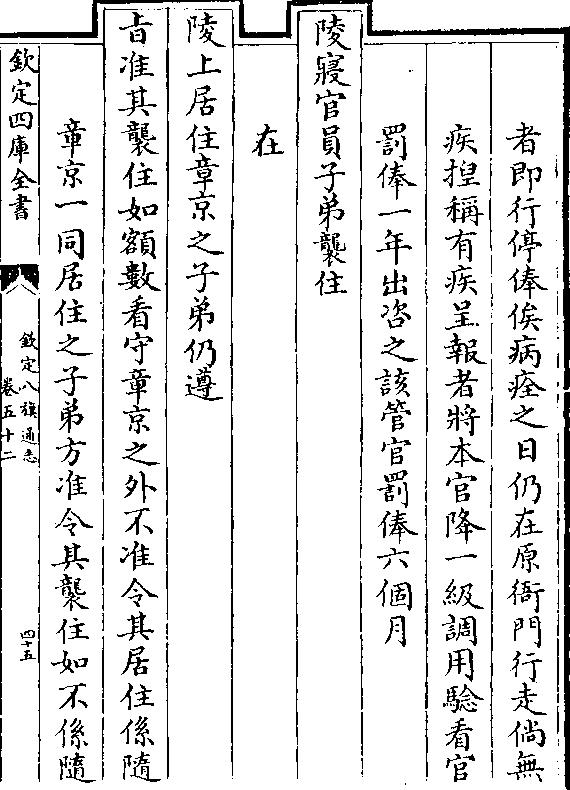 者即行停俸俟病痊之日仍在原衙門行走倘無
疾揑稱有疾呈報者將本官降一級調用驗看官
罰俸一年出咨之該管官罰俸六個月
陵寢官員子弟襲住
在
陵上居住章京之子弟仍遵
㫖准其襲住如額數看守章京之外不准令其居住係隨
章京一同居住之子弟方准令其襲住如不係隨
欽定四庫全書
欽定八旗通志
卷五十二
四十五